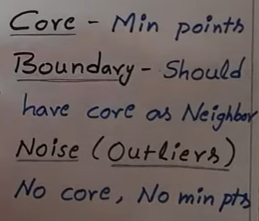 Core - Min points
Boundary - Should
have core as Neighbor
Noise (Outliers)
No core, No min pts